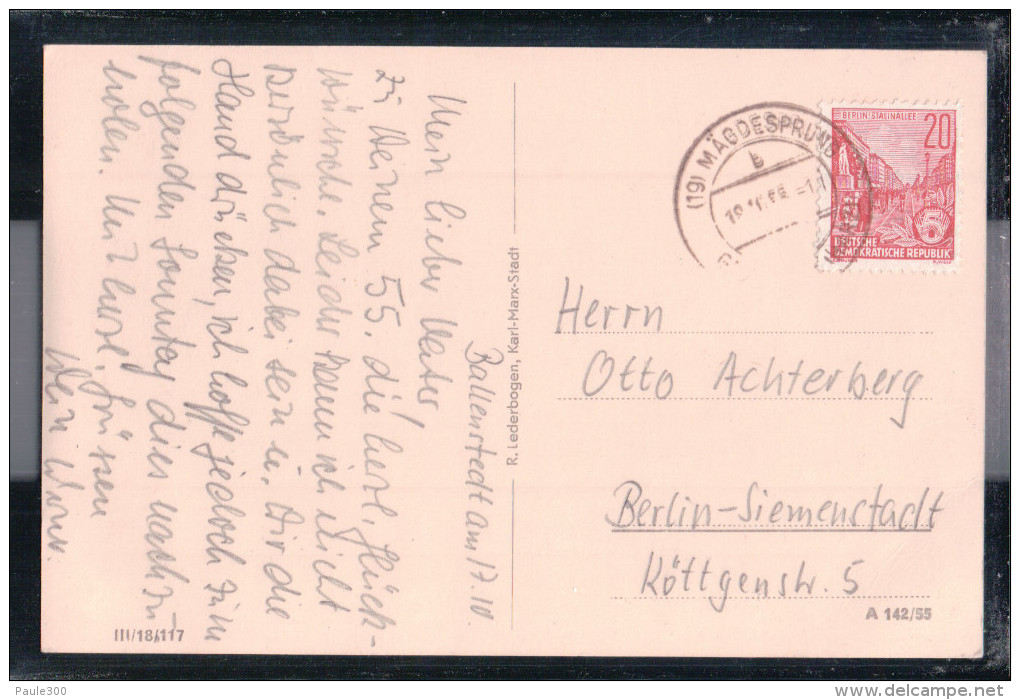 Ballenstedt am 17.10
Mein lieber Vater!
zu Deinem 55. die herzl. Glück-
wünsche. Leider kann ich nicht
persönlich dabei sein u. Dir die
Hand drücken, ich hoffe jedoch zum
folgenden Sonntag dies nachzu
holen. Mit herzl. Grüssen
Dein
R. Lederbogen, Karl-Marx-Stadt
III/18/117
(19) MÄGDESPRUNG
b
BERLIN STALINALLEE
20
5
DEUTSCHE
DEMOKRATISCHE REPUBLIK
Herrn
Otto Achterberg
Berlin-Siemenstadt
Köttgenstr. 5
A 142/55
Paule300
www.delcampe.net